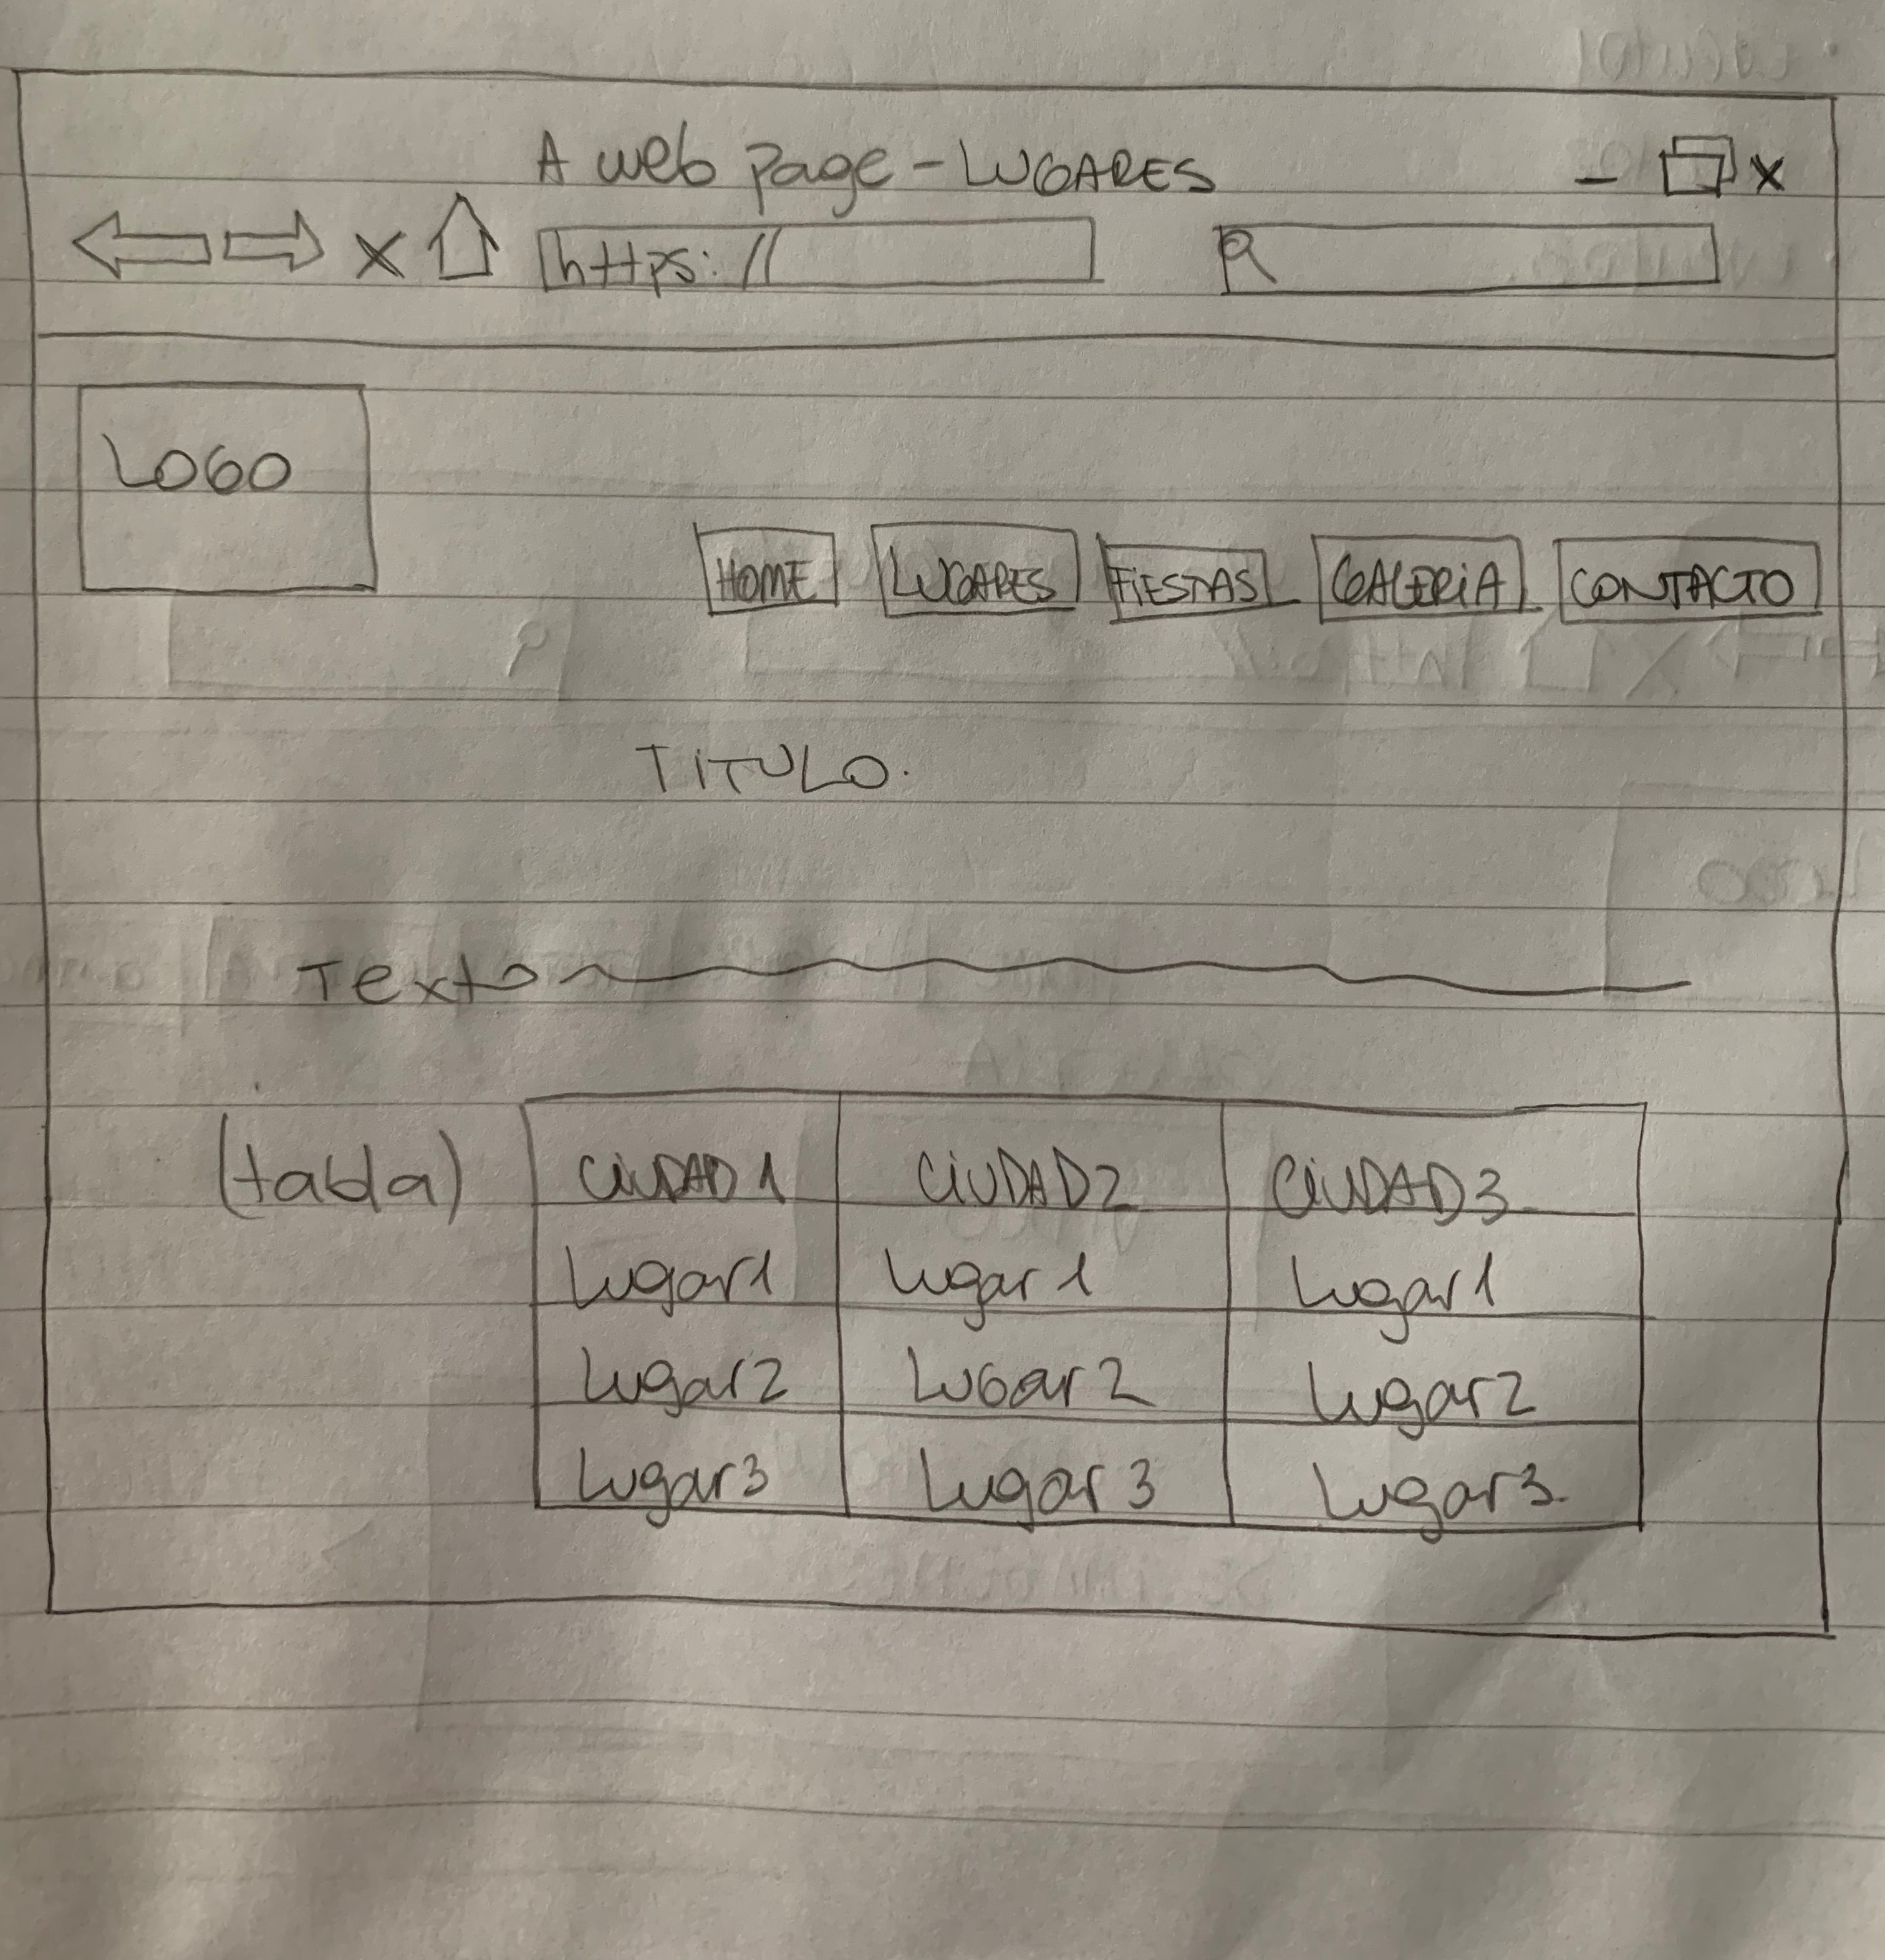 A web page - LUGARES
https://
LOGO
HOME LUGARES FIESTAS GALERIA CONTACTO
TITULO.
Texto
(tabla)
CIUDAD1 CIUDAD2 CIUDAD3
Lugar1 Lugar1 Lugar1
Lugar2 LUGar2 Lugar2
Lugar3 Lugar3 Lugar3